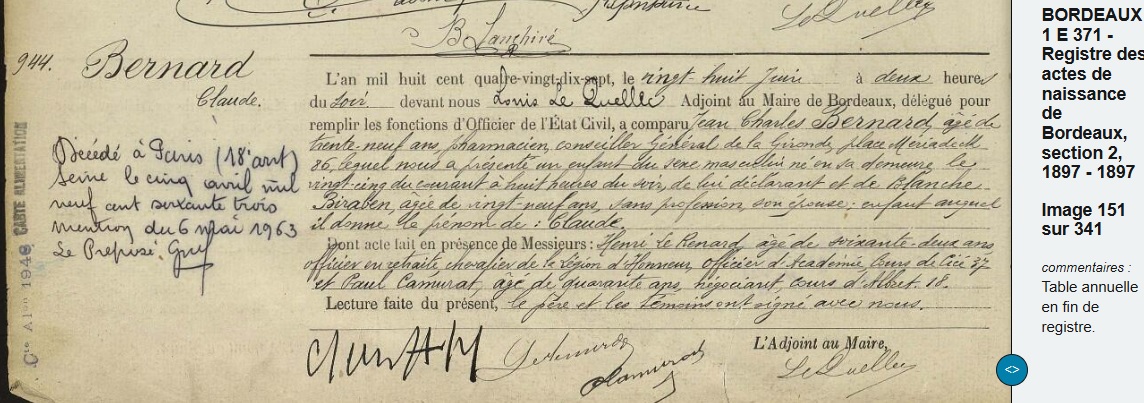 Le Quellec
B. Lanchiré
944.
Bernard
Claude.
L'an mil huit cent quatre-vingt-dix-sept, le vingt-huit Juin à deux heures
du Soir. devant nous Louis Le Quellec Adjoint au Maire de Bordeaux, délégué pour
remplir les fonctions d'Officier de l'État Civil, a comparu Jean Charles Bernard, âgé de
trente-neuf ans, pharmacien, conseiller Général de la Gironde, place Mériadeck
86, lequel nous a présenté un enfant du sexe masculin né en sa demeure, le
vingt-cinq du courant à huit heures du soir, de lui déclarant et de Blanche
Biraben, âgée de vingt-neuf ans, sans profession, son épouse; enfant auquel
il donne le prénom de : Claude
Dont acte fait en présence de Messieurs : Henri Le Renard, âgé de soixante-deux ans
officier en retraite, chevalier de la Légion d'Honneur, officier d'Académie, Cours de Cicé 37
et Paul Camurat, âgé de quarante ans, négociant, cours d'Albret. 18.
Lecture faite du présent, le père et les témoins ont signé avec nous.
L'Adjoint au Maire,
Le Quellec
Camurat
Décédé à Paris (18e arrt)
Seine le cinq avril mil
neuf cent soixante trois
mention du 6 mai 1963
Le Préposé.
1948 CARTE ALIMENTATION
BORDEAUX
1 E 371 -
Registre des
actes de
naissance
de
Bordeaux,
section 2,
1897 - 1897
Image 151
sur 341
commentaires :
Table annuelle
en fin de
registre.
<>